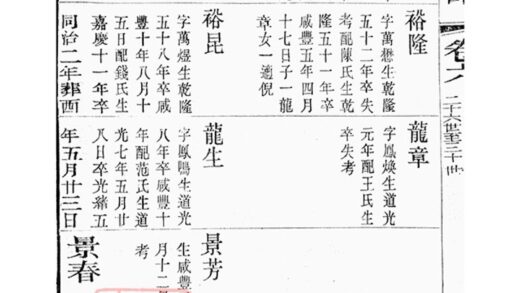 卷六 二十六世至三十世
裕隆
字萬懋生乾隆
五十二年卒失
考配陳氏生乾
隆五十一年卒
咸豐五年四月
十七日子一龍
章女一適倪
裕昆
字萬煜生乾隆
五十八年卒咸
豐十年八月十
五日配錢氏生
嘉慶十一年卒
同治二年葬酉
龍章
字鳳煥生道光
元年配王氏生
卒失考
龍生
字鳳鳴生道光
八年卒咸豐十
年配范氏生道
光七年五月廿
八日卒光緒五
年五月廿三日
景芳
生咸豐
月十二
考
景春